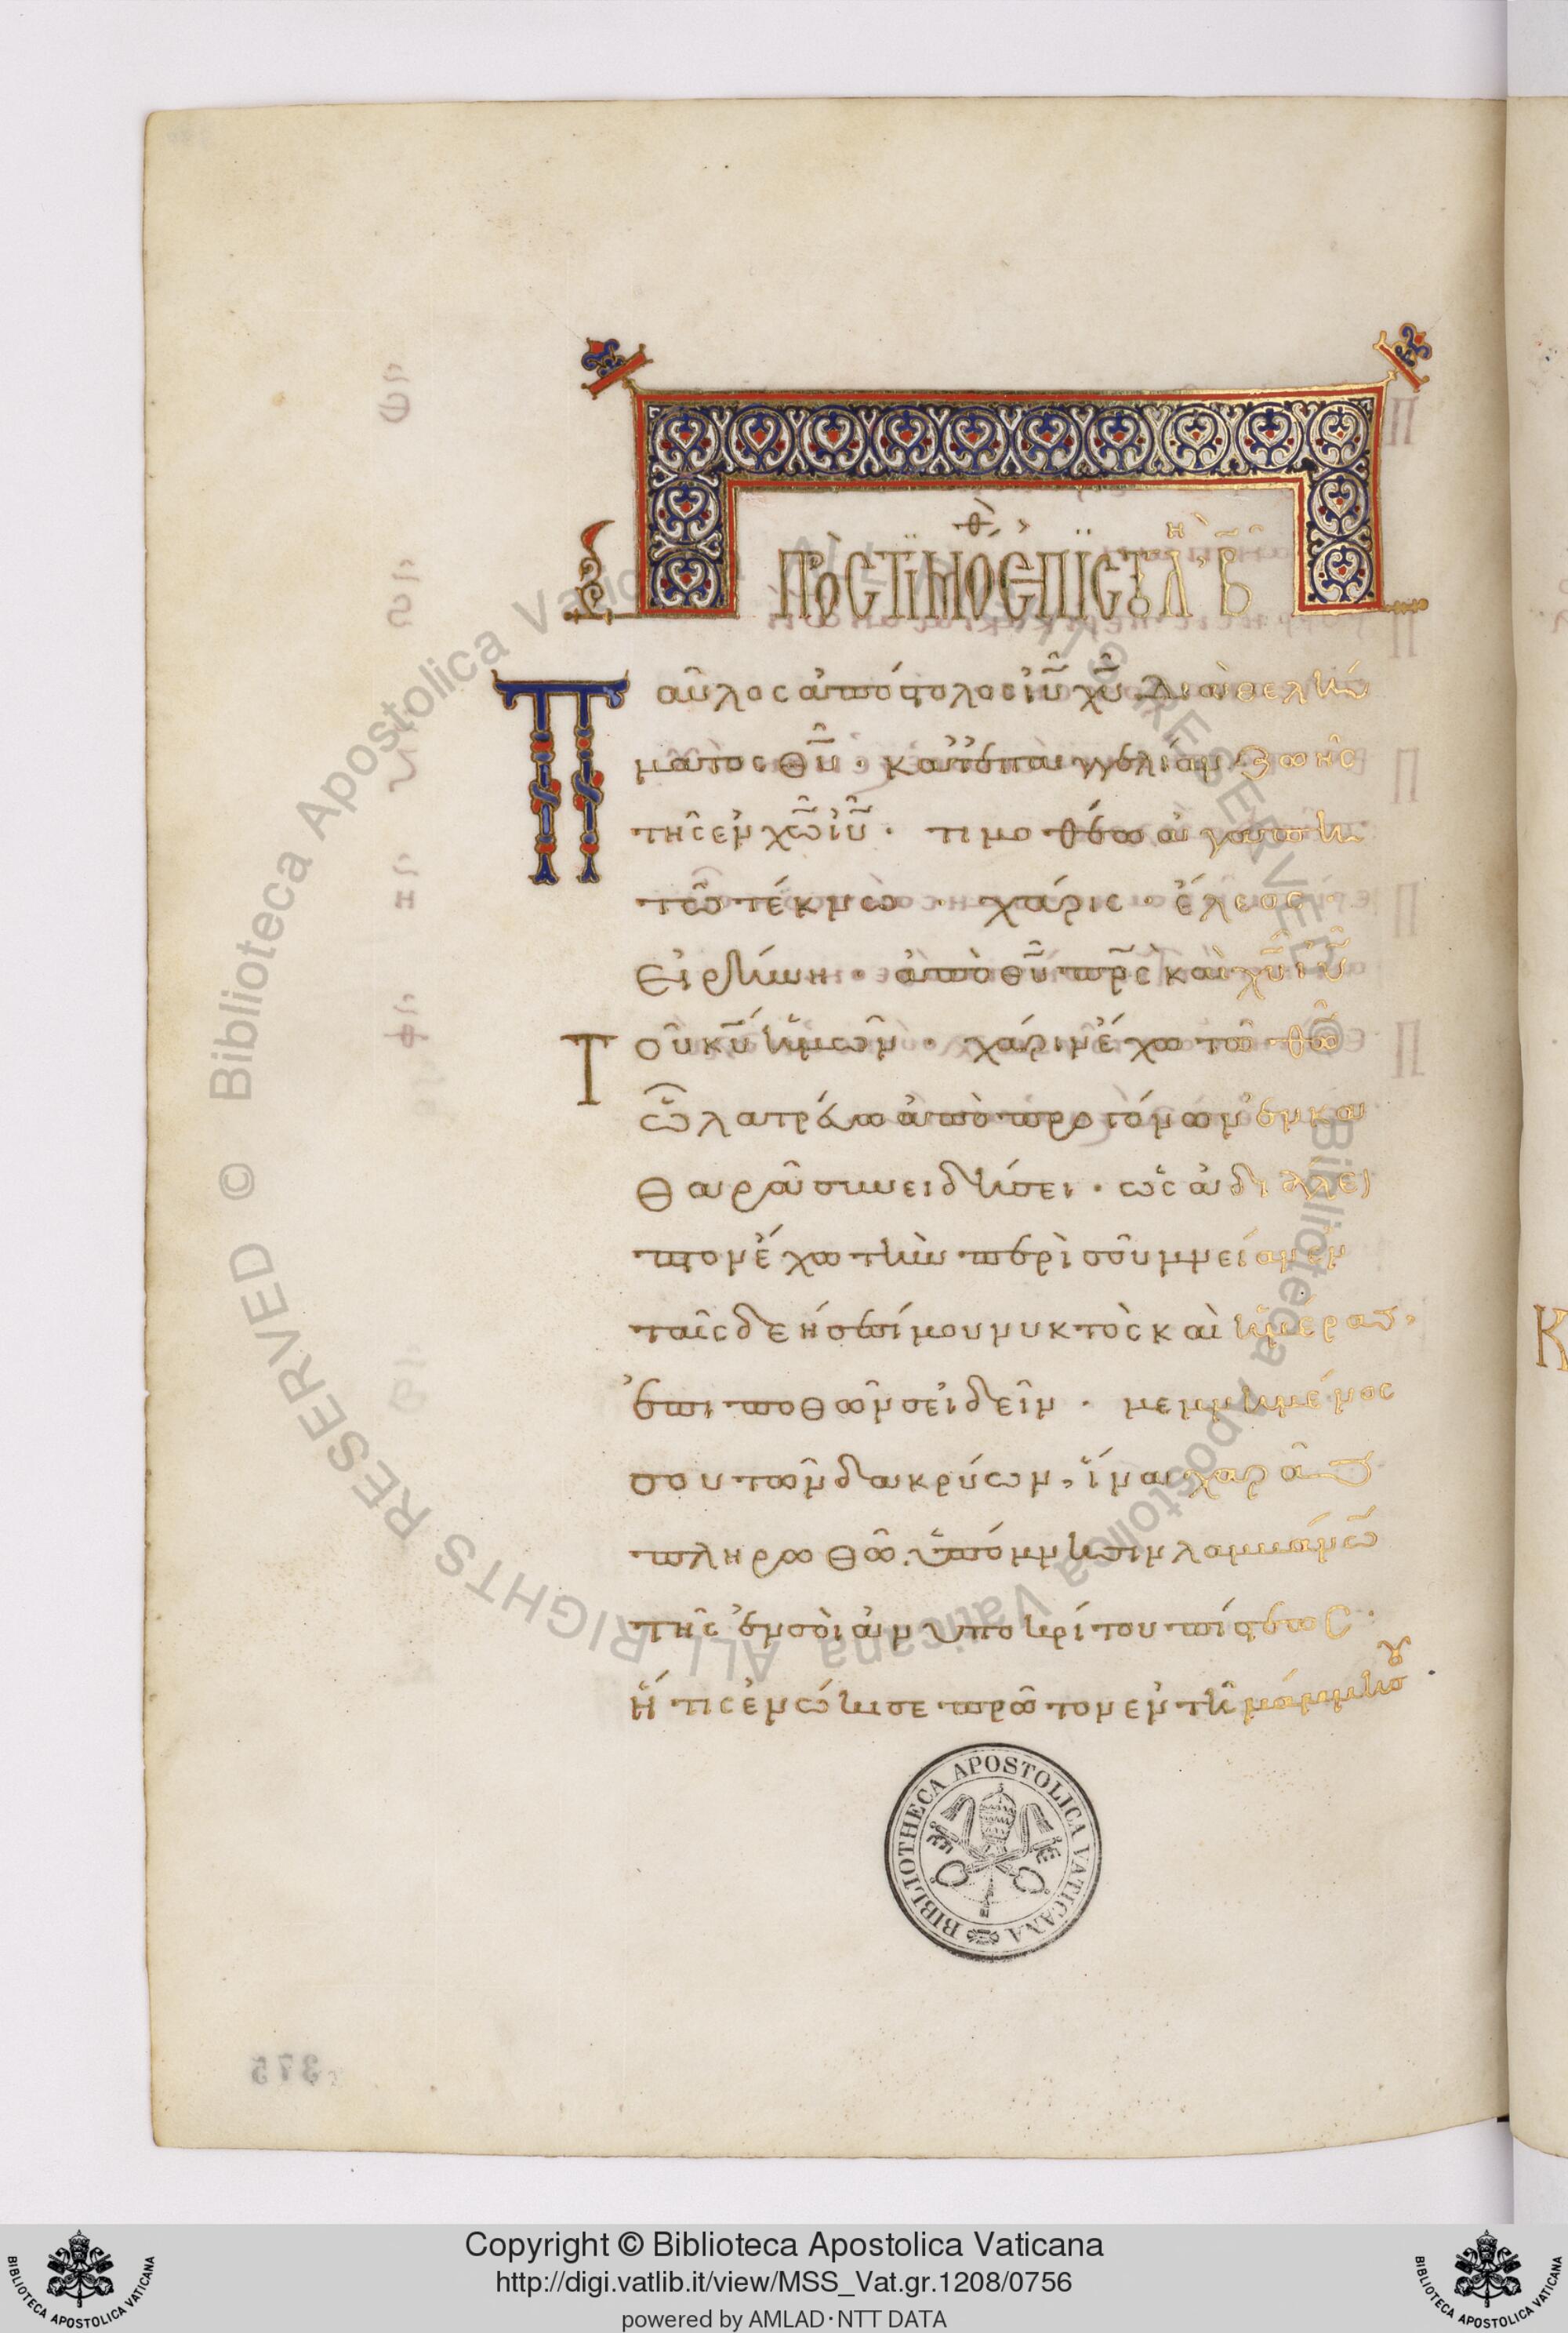 ΠΡὸΣ ΤΙΜΌΘΕΟΝ ἘΠΙΣΤΟΛῊ Β̄
Παῦλος ἀπόστολος ἰῦ χῦ. διὰ θελή
ματος θῦ· κατ' ἐπαγγελίαν ζωῆς
τῆς ἐν χῶ ἰῦ· τιμοθέω ἀγαπη
τῶ τέκνω· χάρις· ἔλεος·
εἰρήνη· ἀπὸ θῦ πρ̄ς καὶ χῦ ἰῦ
Τοῦ κῦ ἡμῶν· χάριν ἔχω τῶ θῶ
ὧ λατρεύω ἀπὸ προγόνων ἐν κα
θαρᾶ συνειδήσει· ὡς ἀδιαλεί
πτον ἔχω τὴν περὶ σοῦ μνείαν ἐν
ταῖς δεήσεσί μου νυκτὸς καὶ ἡμέρας,
ἐπιποθῶν σε ἰδεῖν· μεμνημένος
σου τῶν δακρύων, ἵνα χαρᾶς
πληρωθῶ. ὑπόμνησιν λαμβάνω
τῆς ἐν σοὶ ἀνυποκρίτου πίστεως·
ἥτις ἐνώκησε πρῶτον ἐν τῆ μάμμη σου
375
BIBLIOTHECA APOSTOLICA VATICANA
© Biblioteca Apostolica Vaticana ALL RIGHTS RESERVED
© Biblioteca Apostolica Vaticana ALL RIGHTS RESERVED
Copyright © Biblioteca Apostolica Vaticana
http://digi.vatlib.it/view/MSS_Vat.gr.1208/0756
powered by AMLAD·NTT DATA
BIBLIOTECA APOSTOLICA VATICANA
BIBLIOTECA APOSTOLICA VATICANA